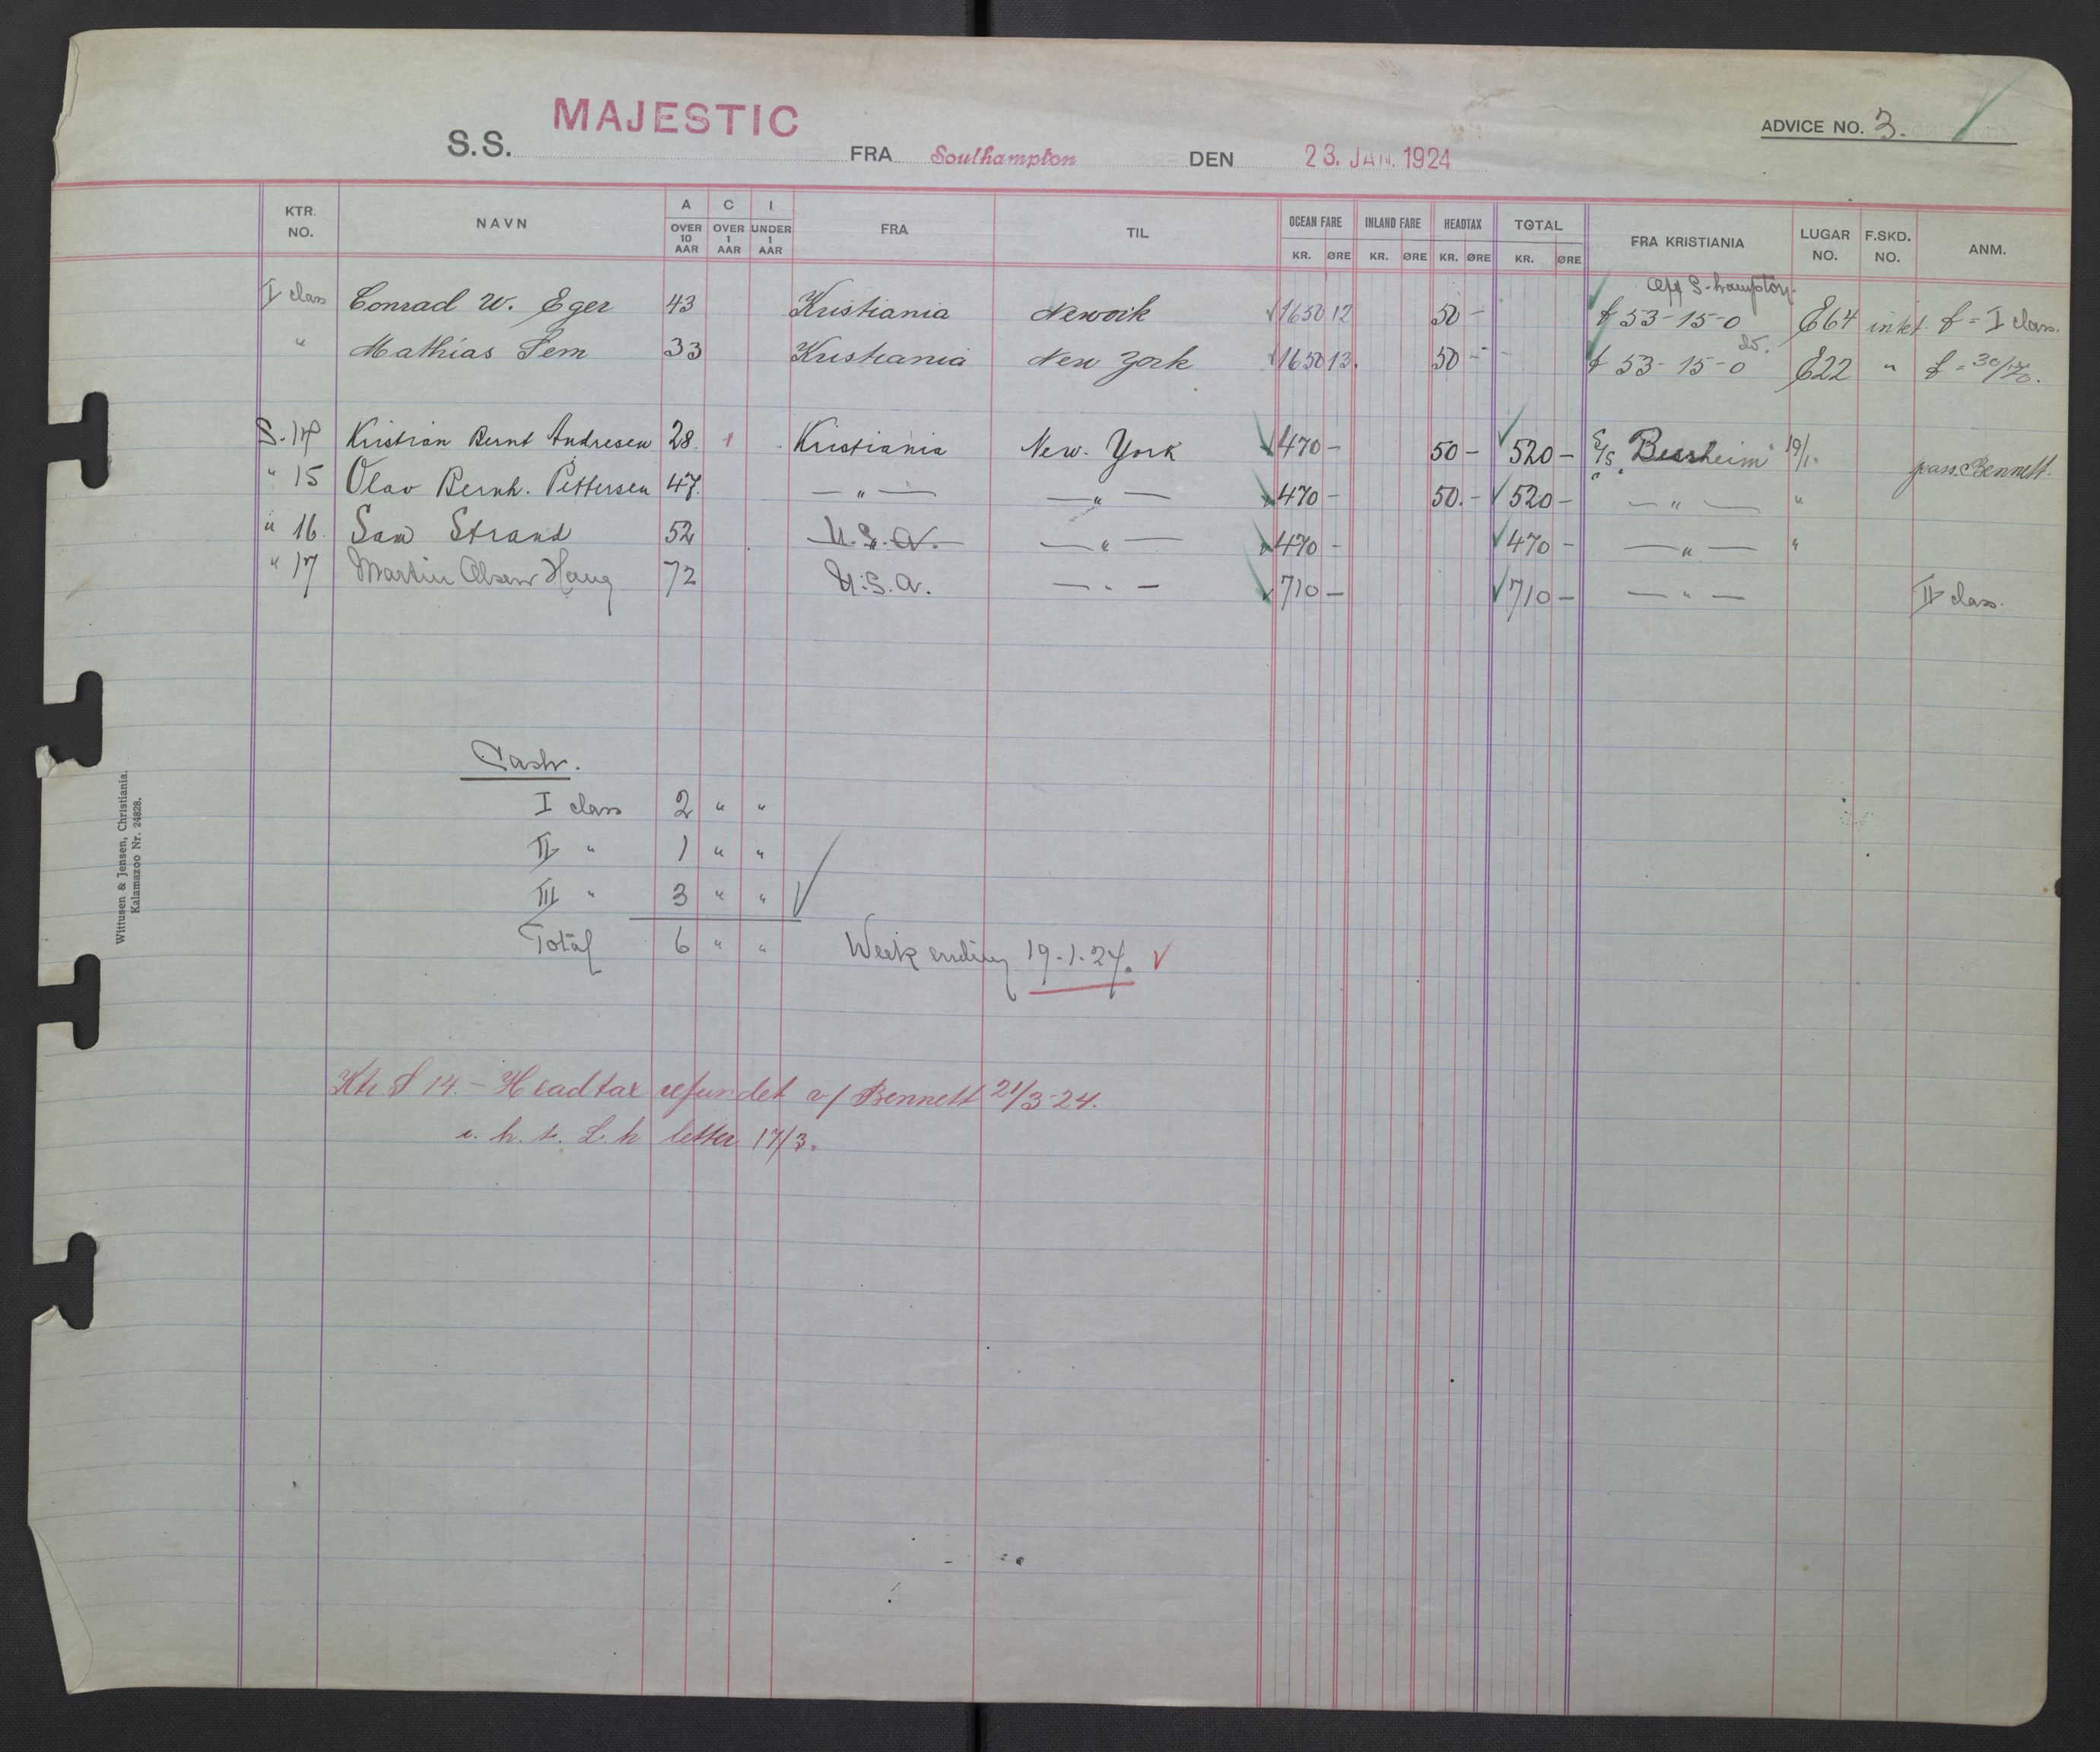 S.S. MAJESTIC FRA Southampton DEN 23. JAN. 1924 ADVICE NO. 3.
KTR. NO. NAVN A OVER 10 AAR C OVER 1 AAR I UNDER 1 AAR FRA TIL OCEAN FARE KR. ØRE INLAND FARE KR. ØRE HEADTAX KR. ØRE TOTAL KR. ØRE FRA KRISTIANIA LUGAR NO. F.SKD. NO. ANM.
S-hampton.
I class Conrad W. Eger 43 Kristiania Newoik 1650 12 50 - £ 53-15-0 E64 £ = I class.
" Mathias Sem 33 Kristiania New York 1650 13. 50 - £ 53-15-0 do. E22 " £ = 30/70.
S. 14 Kristian Bernt Andresen 28 Kristiania New-York 470 - 50 - 520 - S/S "Bessheim" 19/1. pass. Bennett.
" 15 Olav Bernh. Pettersen 47. — " — — " — 470 - 50. - 520 - — " — "
" 16. Sam Strand 52 U.S.A. — " — 470 - 470 - — " — "
" 17 Martin Olsen Haug 72 U.S.A. — " — 710 - 710 - — " — II class.
Cash.
I class 2 " "
II " 1 " "
III " 3 " "
Total 6 " "
Week ending 19.1.24.
Ktr S 14. - Headtax refundet v/ Bennett 21/3-24.
i. h. t. L. h letter 17/3.
Wittusen & Jensen, Christiania.
Kalamazoo Nr. 24828.